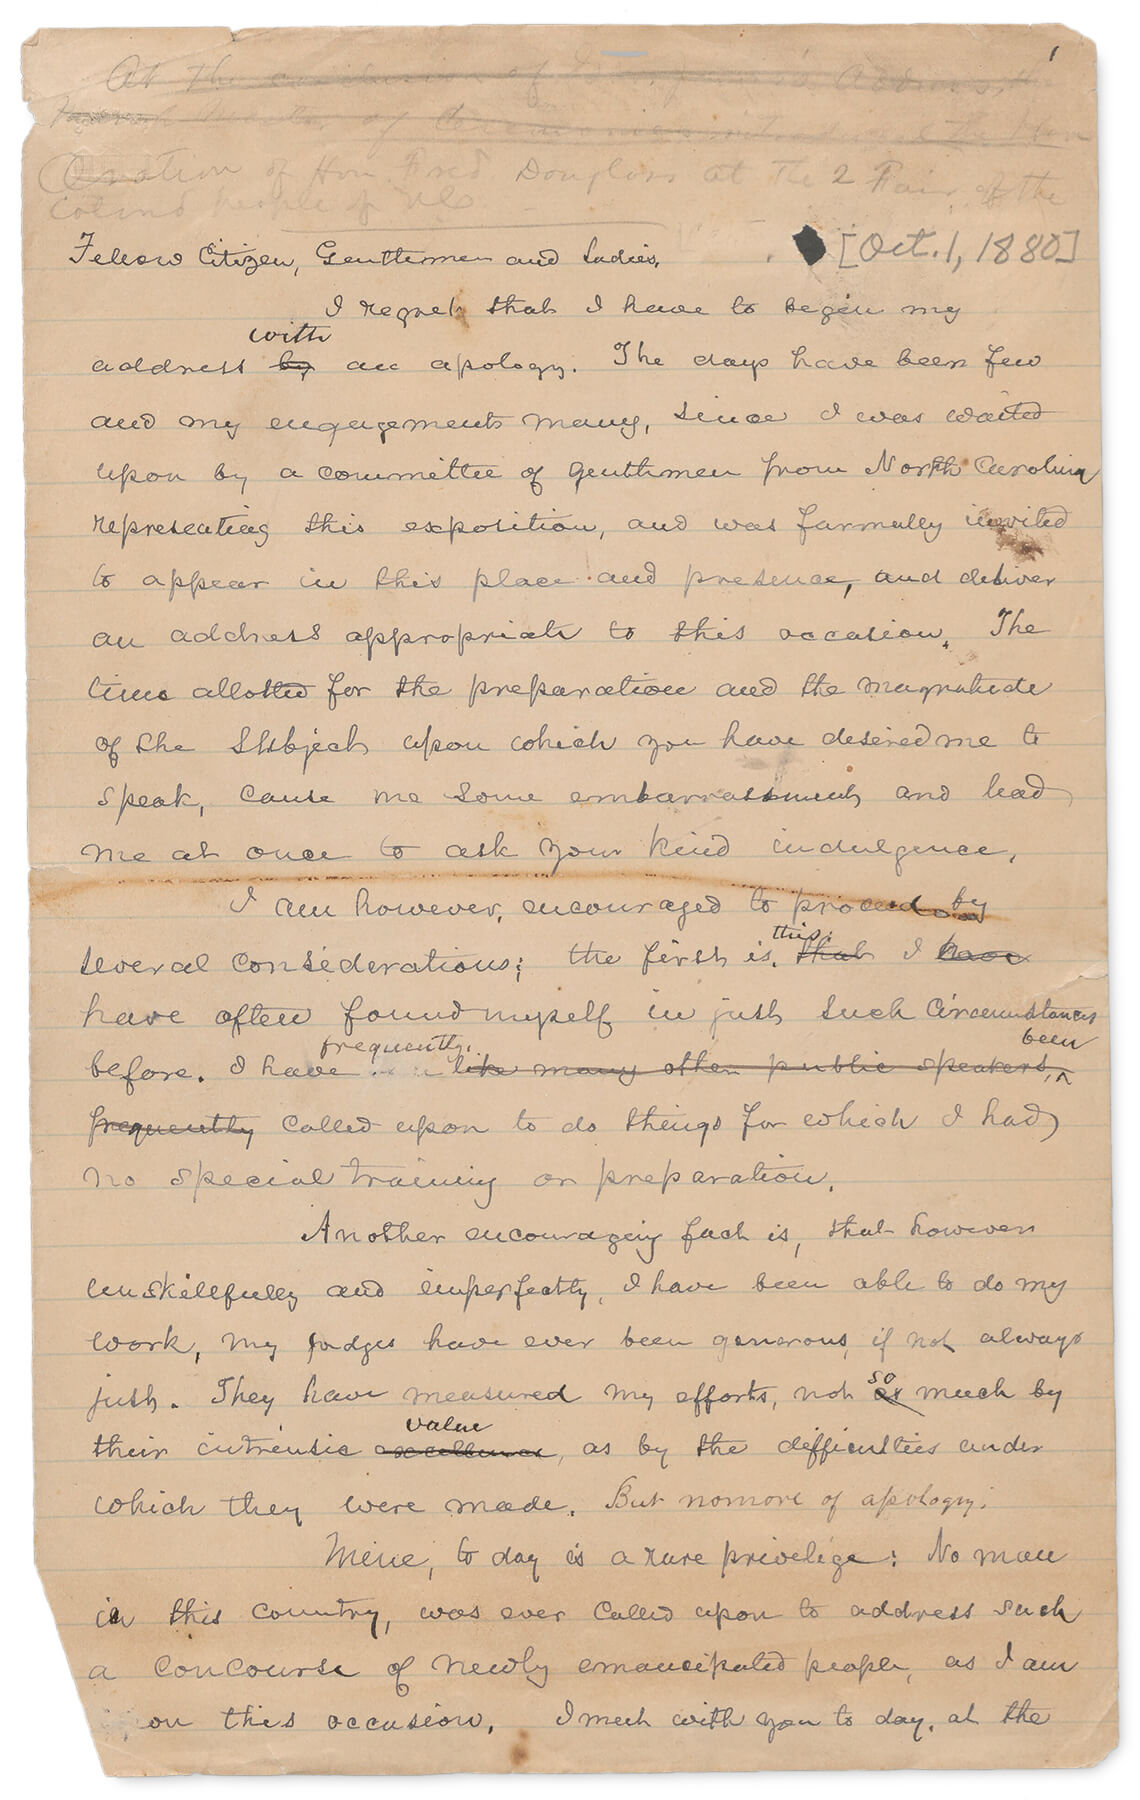 1
At the conclusion of address, the
Master of Ceremonies introduced the Hon
Oration of Hon Fred. Douglass at the 2 Fair of the
colored people of N.C.
[Oct. 1, 1880]
Fellow Citizen, Gentlemen and Ladies,
I regret that I have to begin my
with
address by an apology. The days have been few
and my engagements many, since I was waited
upon by a committee of gentlemen from North Carolina
representing this exposition, and was formally invited
to appear in this place and presence, and deliver
an address appropriate to this occasion. The
time allotted for the preparation and the magnitude
of the subject upon which you have desired me to
speak, cause me some embarrassment and lead
me at once to ask your kind indulgence.
I am however, encouraged to proceed by
this:
several considerations; the first is, that I have
have often found myself in just such circumstances
frequently. been
before. I have like many other public speakers, ^
frequently called upon to do things for which I had
no special training or preparation.
Another encouraging fact is, that however
unskillfully and imperfectly, I have been able to do my
work, my judges have ever been generous, if not always
so
just. They have measured my efforts, not as much by
value
their intrinsic excellence, as by the difficulties under
which they were made. But no more of apology.
Mine, to day is a rare privelige: No man
in this country, was ever called upon to address such
a concourse of newly emancipated people, as I am
on this occasion. I meet with you to day, at the